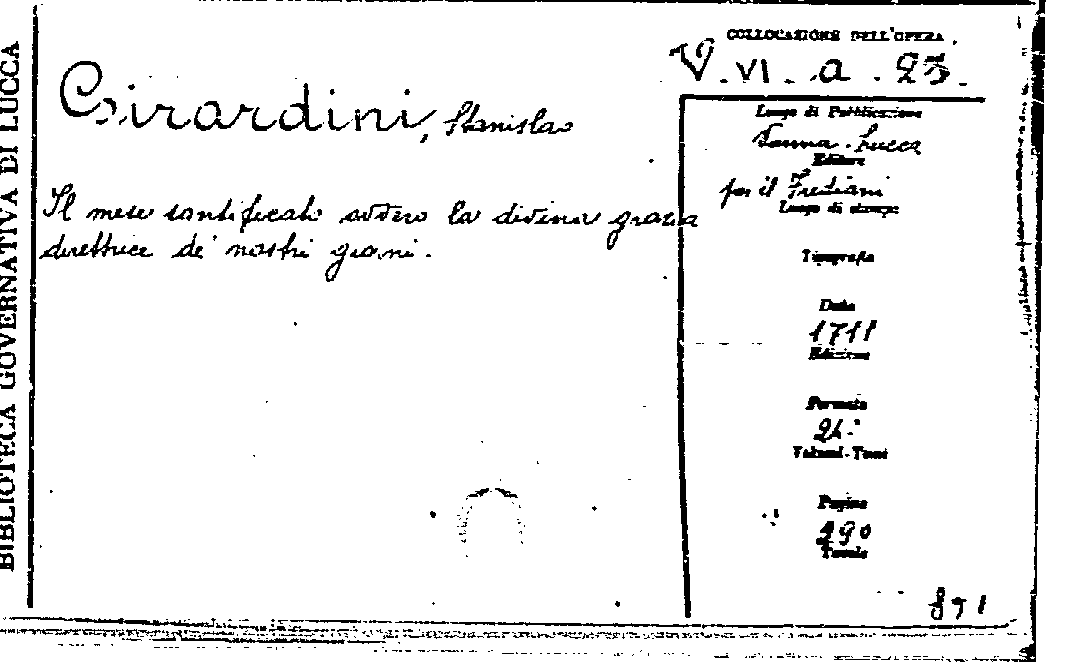 BIBLIOTECA GOVERNATIVA DI LUCCA
COLLOCAZIONE DELL'OPERA
V. VI. a. 23.
Girardini, Stanislao
Il mese santificato ovvero la divina grazia
direttrice de' nostri giorni.
Luogo di Pubblicazione
Parma. Lucca
Editore
per il Frediani
Luogo di stampa
Tipografia
Data
1711
Edizione
Formato
24°
Volumi-Tomi
Pagine
290
Tavole